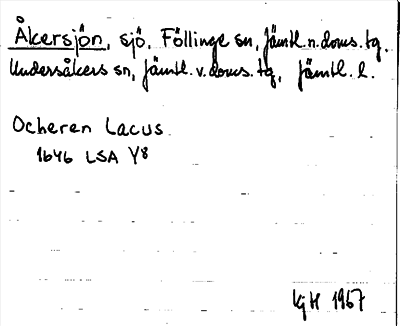 Åkersjön, sjö, Föllinge sn, Jämtl. n. doms. tg.
Undersåkers sn, Jämtl. v. doms. tg, Jämtl. l.
Ocheren Lacus.
1646 LSA Y8
KjH 1967